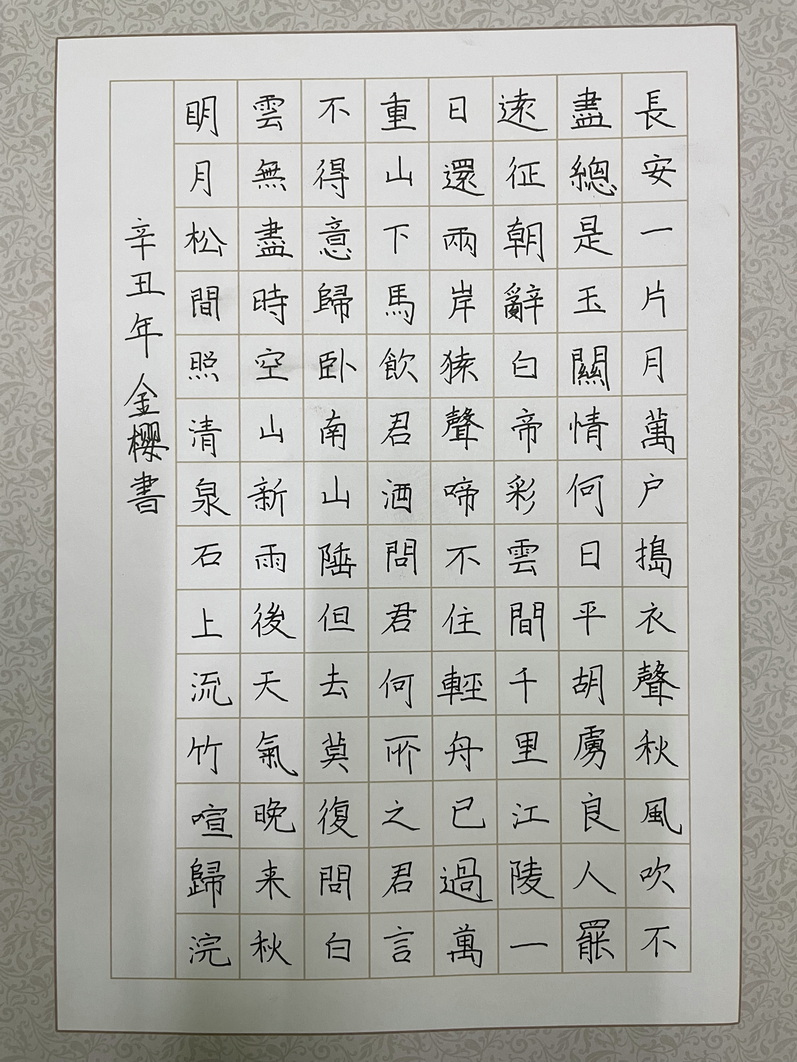 長安一片月萬户搗衣聲秋風吹不
盡總是玉關情何日平胡虜良人罷
遠征朝辭白帝彩雲間千里江陵一
日還兩岸猿聲啼不住輕舟已過萬
重山下馬飲君酒問君何所之君言
不得意歸卧南山陲但去莫復問白
雲無盡時空山新雨後天氣晚来秋
明月松間照清泉石上流竹喧歸浣
辛丑年金櫻書